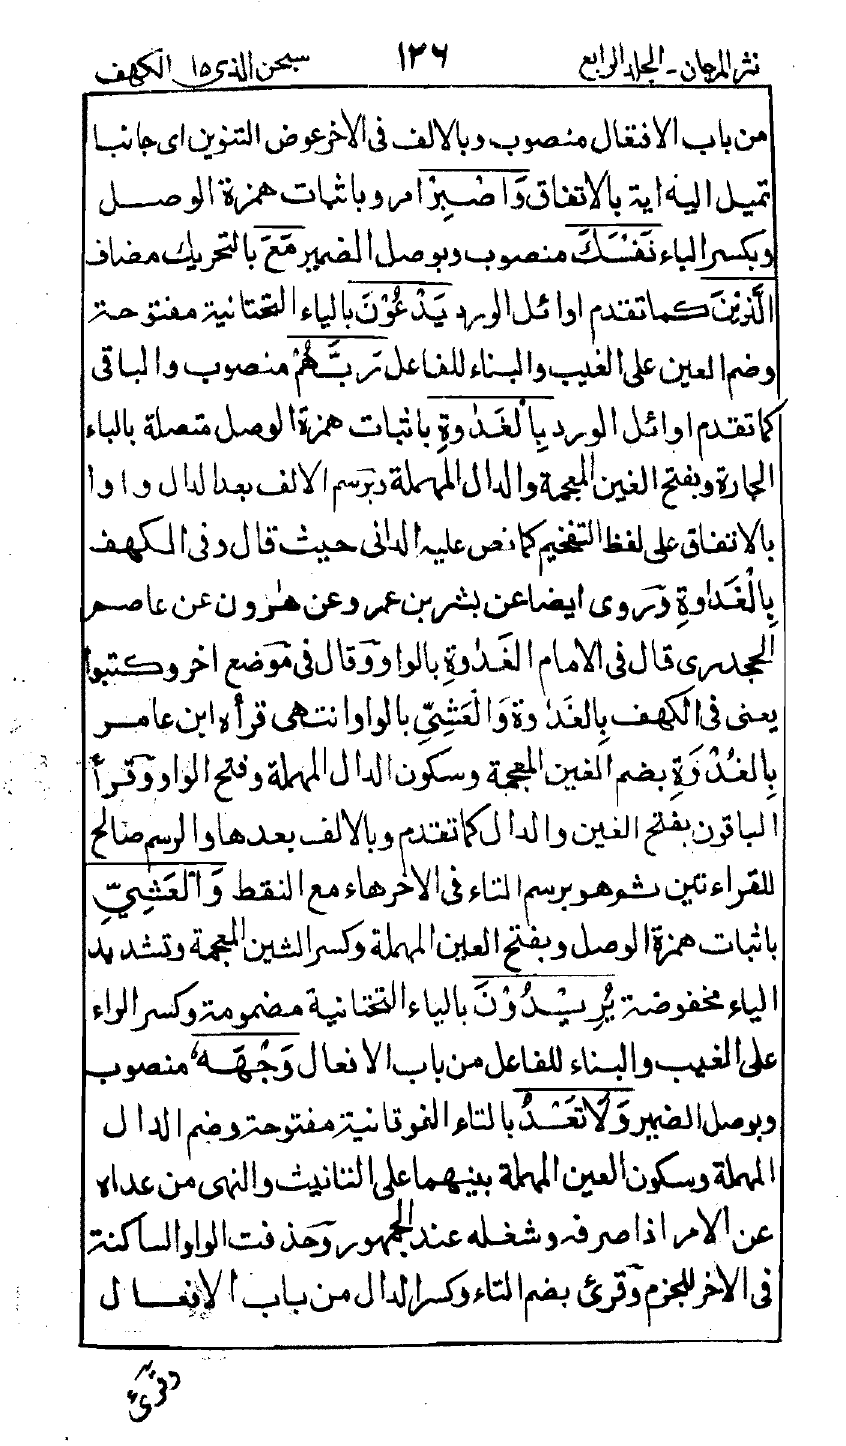 نثر المرجان - الجلد الرابع ١٢٦ سبحن الذى ١٥ الكهف
من باب الافتعال منصوب وبالالف فى الاخر عوض التنوين اى جانبا
تميل اليه اية بالاتفاق وَاصْبِرْ امر وباثبات همزة الوصل
وبكسر الباء نَفْسَكَ منصوب وبوصل الضمير مَعَ بالتحريك مضاف
الَّذِيْنَ كما تقدم اوائل الورد يَدْعُوْنَ بالياء التحتانية مفتوحة
وضم العين على الغيب والبناء للفاعل رَبَّهُمْ منصوب والباقى
كما تقدم اوائل الورد بِالْغَدٰوةِ باثبات همزة الوصل متصلة بالباء
الجارة وبفتح الغين المعجمة والدال المهملة وبرسم الالف بعد الدال واوا
بالاتفاق على لفظ التفخيم كما نص عليه الدانى حيث قال وفى الكهف
بِالْغَدٰاوةِ وروى ايضا عن بشر بن عمر وعن هٰرون عن عاصم
الجحدرى قال فى الامام الغَدٰوةِ بالواو وقال فى موضع اخر وكتبوا
يعنى فى الكهف بِالغَدٰوة وَالْعَشِيّ بالواو انتهى قرأه ابن عامر
بِالغُدْوَةِ بضم الغين المعجمة وسكون الدال المهملة وفتح الواو وقرأ
الباقون بفتح الغين والدال كما تقدم وبالالف بعدها والرسم صالح
للقراءتين ثم هو برسم التاء فى الاخر هاء مع النقط وَالْعَشِيِّ
باثبات همزة الوصل وبفتح العين المهملة وكسر الشين المعجمة وتشديد
الياء مخفوضة يُرِيْدُوْنَ بالياء التحتانية مضمومة وكسر الراء
على الغيب والبناء للفاعل من باب الافعال وَجْهَهٗ منصوب
وبوصل الضمير وَلَا تَعْدُ بالتاء الفوقانية مفتوحة وضم الدال
المهملة وسكون العين المهملة بينهما على التانيث والنهى من عداه
عن الامر اذا صرفه وشغله عند الجمهور وحذفت الواو الساكنة
فى الاخر للجزم وقرئ بضم التاء وكسر الدال من باب الافعال
وقرئ